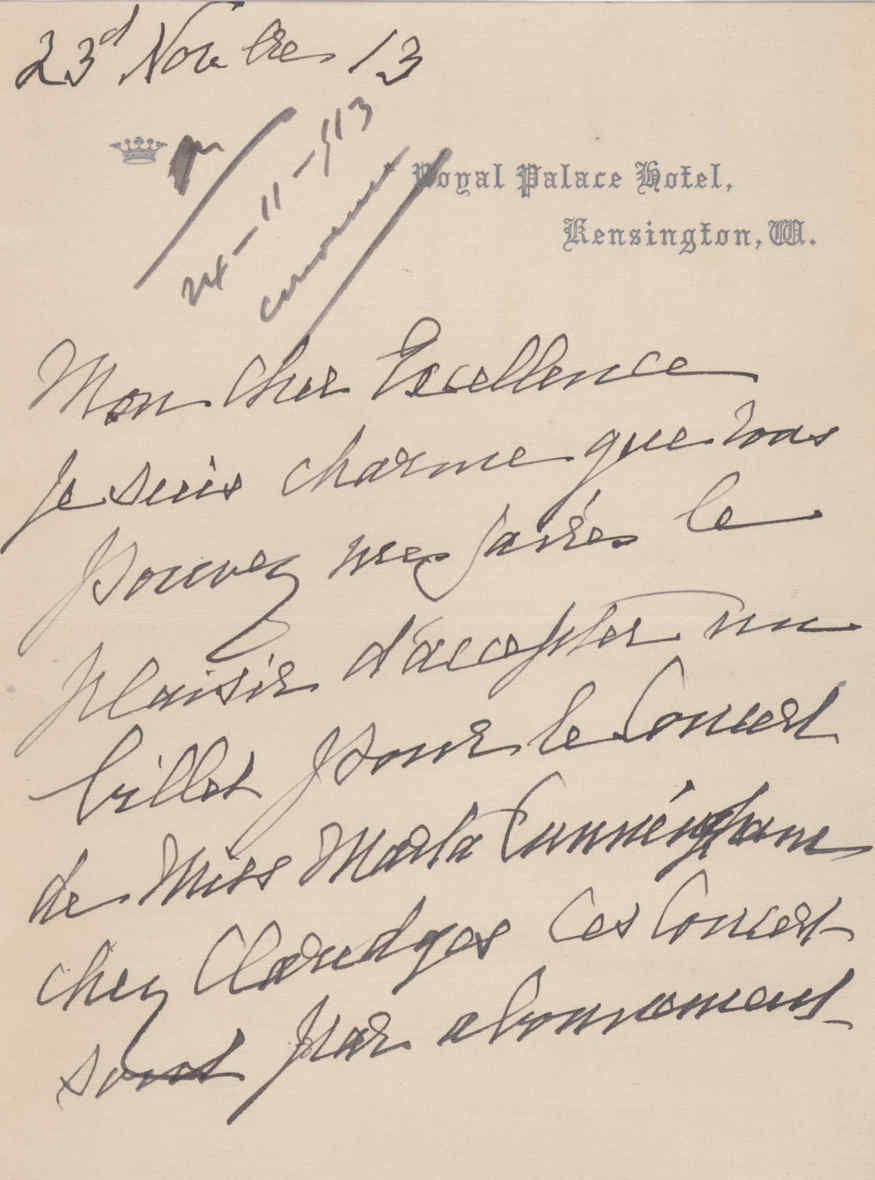 23d Novbre 13
24-11-913
Royal Palace Hotel,
Kensington, W.
Mon cher Excellence
Je suis charme que vous
pouvez me faires le
plaisir d'accepter un
billet pour le Concert
de Miss Marta Cunningham
chez Claridges Ces Concert
sont par abonnement